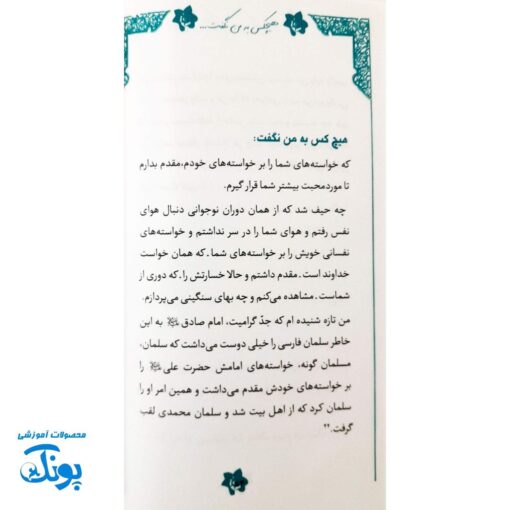 هیچکس به من نگفت...
هیچ کس به من نگفت:
که خواسته‌های شما را بر خواسته‌های خودم،مقدم بدارم
تا موردمحبت بیشتر شما قرار گیرم.
چه حیف شد که از همان دوران نوجوانی دنبال هوای
نفس رفتم و هوای شما را در سر نداشتم و خواسته‌های
نفسانی خویش را بر خواسته‌های شما ـ که همان خواست
خداوند است ـ مقدم داشتم و حالا خسارتش را ـ که دوری از
شماست ـ مشاهده می‌کنم و چه بهای سنگینی می‌پردازم.
من تازه شنیده ام که جدّ گرامیت، امام صادق به این
خاطر سلمان فارسی را خیلی دوست می‌داشت که سلمان،
مسلمان گونه، خواسته‌های امامش حضرت علی را
بر خواسته‌های خودش مقدم می‌داشت و همین امر او را
سلمان کرد که از اهل بیت شد و سلمان محمدی لقب
گرفت.
محصولات آموزشی
پونک